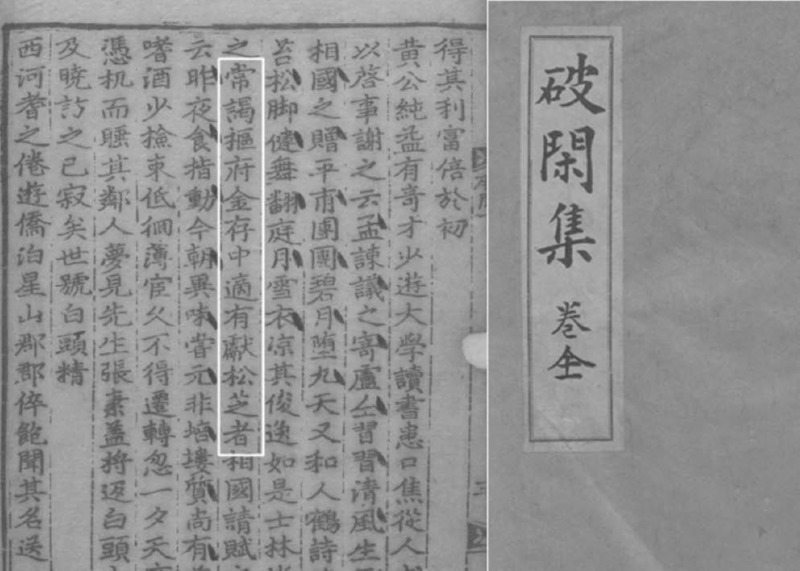 破閑集
卷全
得其利富倍於初
黃公純益有奇才少遊大學讀書患口焦從人
以啓事謝之云孟諫議之寄廬仝習習清風生
相國之贈平甫團團碧月墮九天又和人鶴詩
苔松脚健舞翻庭月雪衣凉其俊逸如是士林
之常謁樞府金存中適有獻松芝者相國請賦
云昨夜食指動今朝異味甞元非培塿質尚有
嗜酒少撿束低徊薄宦久不得遷轉忽一夕天
憑机而睡其鄰人夢見先生張素蓋將返白頭
及曉訪之已寂矣世號白頭精
西河耆之倦遊僑泊星山郡郡倅飽聞其名送